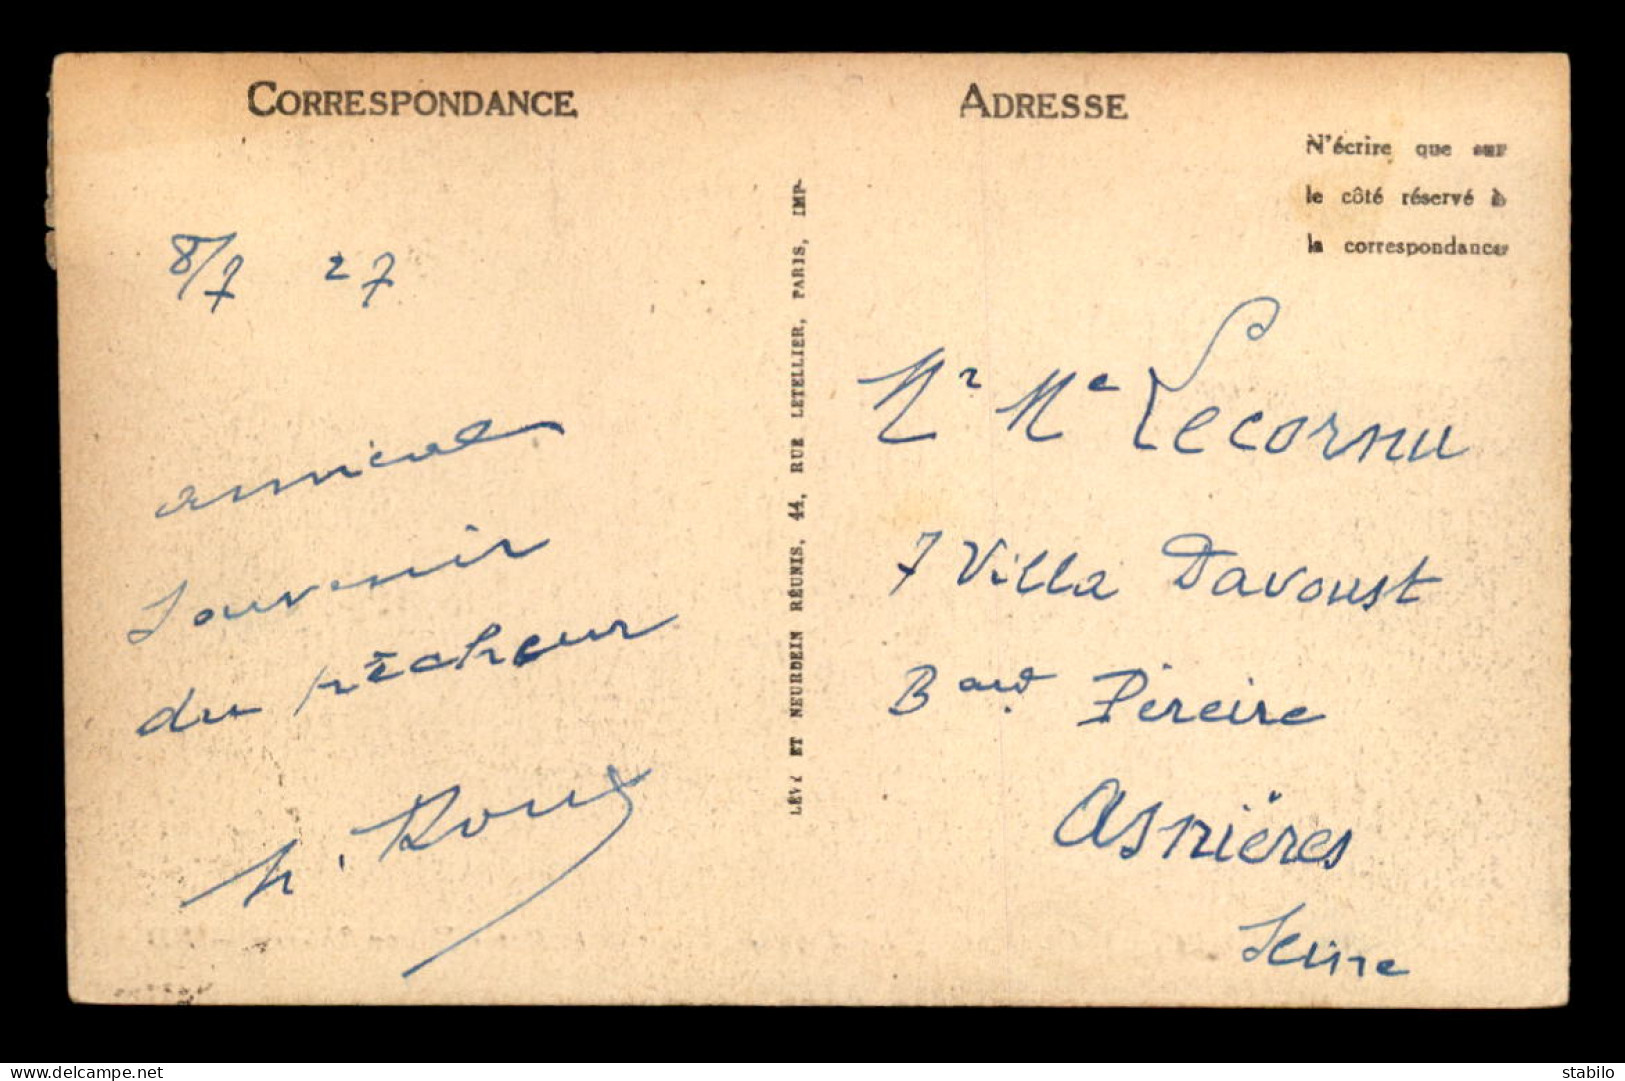 CORRESPONDANCE
8/7 27
amical
souvenir
du pêcheur
h. Roux
LÉVY ET NEURDEIN RÉUNIS, 44, RUE LETELLIER, PARIS, IMP.
ADRESSE
N'écrire que sur
le côté réservé à
la correspondance
Mr Me Lecornu
7 Villa Davoust
Bard. Péreire
Asnières
Seine
www.delcampe.net
stabilo